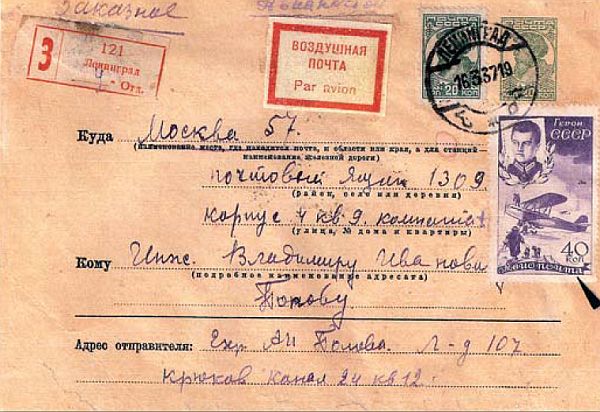 Заказное
З 121
Ленинград
Отд.
ВОЗДУШНАЯ
ПОЧТА
Par avion
ПОЧТА
СССР
20 КОП
ЛЕНИНГРАД
ГЕРОИ
СССР
40
КОП
АВИОПОЧТА
Куда Москва 57.
(наименование места, где находится почта, и области или края, а для станций наименование железной дороги)
почтовый ящик 1309
(район, село или деревня)
корпус 4 кв 9.
(улица, № дома и квартиры)
Кому Инж. Владимиру Иванов
(подробное наименование адресата)
Попову
Адрес отправителя: Л-д 107
Крюков канал 24 кв 12.